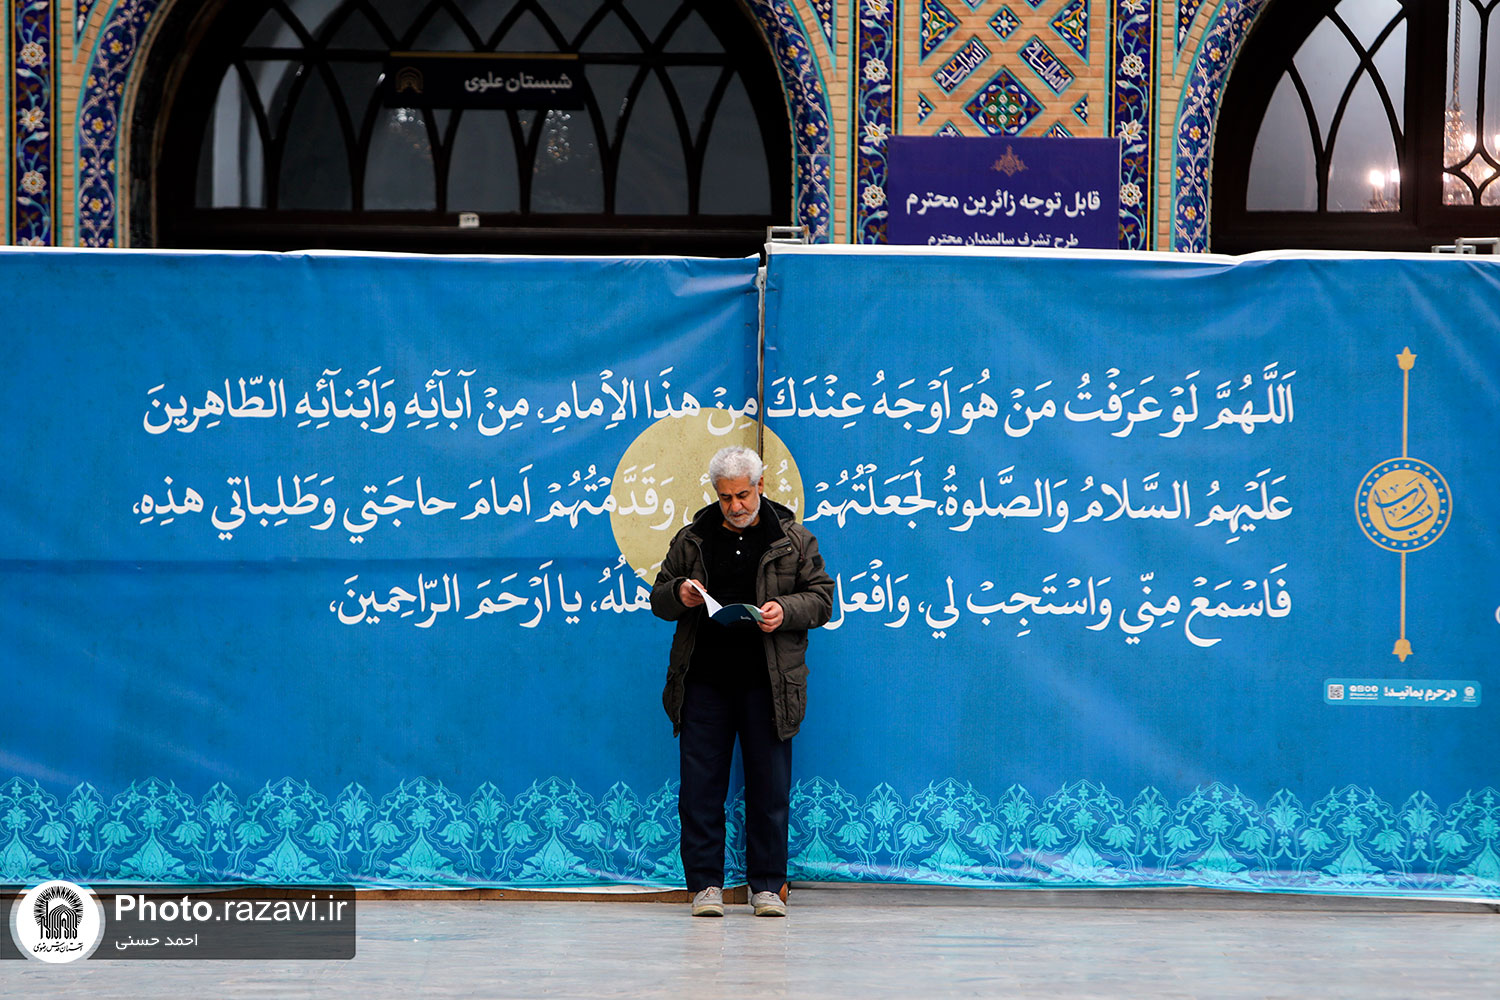 شبستان علوی
قابل توجه زائرین محترم
طرح تشرف سالمندان محترم
اَللّٰهُمَّ لَوْ عَرَفْتُ مَنْ هُوَ اَوْجَهُ عِنْدَكَ مِنْ هذَا الاِْمامِ، مِنْ آبآئِهِ وَاَبْنآئِهِ الطّاهِرينَ
عَلَيْهِمُ السَّلامُ وَالصَّلوةُ، لَجَعَلْتُهُمْ وَقَدَّمْتُهُمْ اَمامَ حاجَتي وَطَلِباتي هذِهِ،
فَاسْمَعْ مِنّي وَاسْتَجِبْ لي، وَافْعَلْ اَهْلُهُ، يا اَرْحَمَ الرّاحِمينَ،
درحرم بمانید!
Photo.razavi.ir
احمد حسنی
آستان قدس رضوی